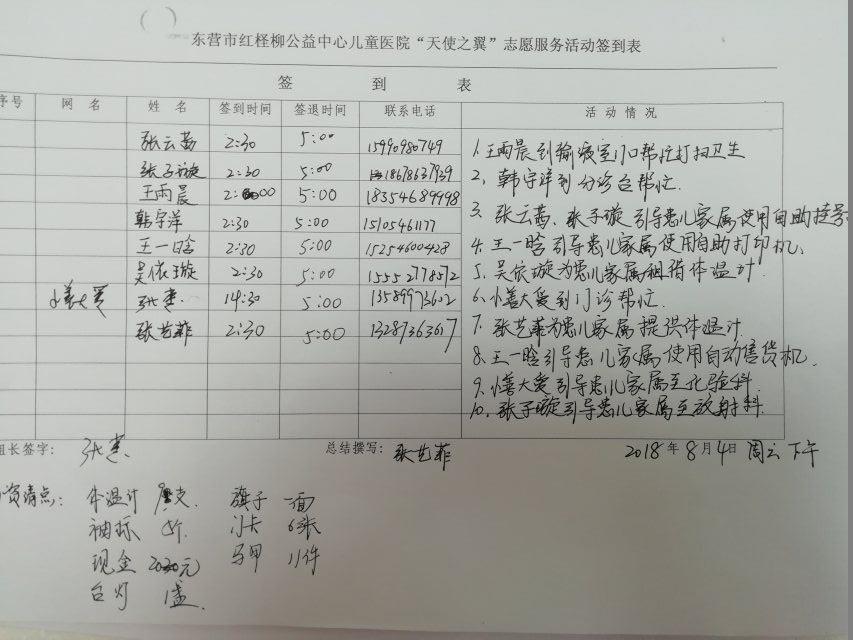 东营市红柽柳公益中心儿童医院“天使之翼”志愿服务活动签到表
签 到 表
序号 网 名 姓 名 签到时间 签退时间 联系电话 活 动 情 况
张云茜 2:30 5:00 15990980749
张子璇 2:30 5:00 18678637939
王雨晨 2:00 5:00 18354689998
韩宇洋 2:30 5:00 15105461177
王一晗 2:30 5:00 15254600428
吴依璇 2:30 5:00 15552778572
小善大爱 张惠 14:30 5:00 13589973602
张艺菲 2:30 5:00 13287363617
1. 王雨晨到输液室门口帮忙打扫卫生
2. 韩宇洋到分诊台帮忙.
3. 张云茜、张子璇引导患儿家属使用自助挂号
4. 王一晗引导患儿家属使用自助打印机.
5. 吴依璇为患儿家属 体温计.
6. 小善大爱到门诊帮忙.
7. 张艺菲为患儿家属提供体温计.
8. 王一晗引导患儿家属使用自动售货机.
9. 小善大爱引导患儿家属至化验科.
10. 张子璇引导患儿家属至放射科.
组长签字: 张惠 总结撰写: 张艺菲 2018年8月4日 周六 下午
资清点: 体温计 支. 旗子 一面
袖标 个. 小卡 6张
现金 元 马甲 11件
台灯 1盏.